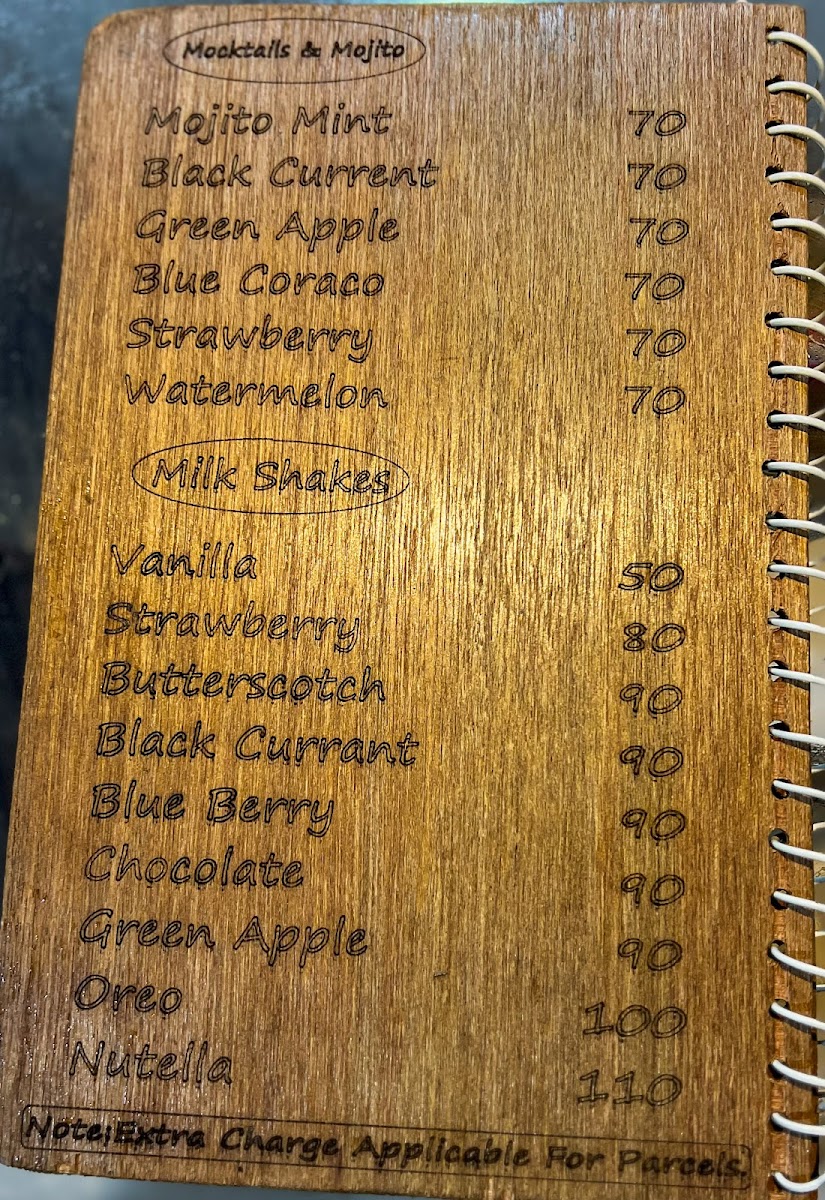 Mocktails & Mojito
Mojito Mint 70
Black Current 70
Green Apple 70
Blue Coraco 70
Strawberry 70
Watermelon 70
Milk Shakes
Vanilla 50
Strawberry 80
Butterscotch 90
Black Currant 90
Blue Berry 90
Chocolate 90
Green Apple 90
Oreo 100
Nutella 110
Note:Extra Charge Applicable For Parcels.